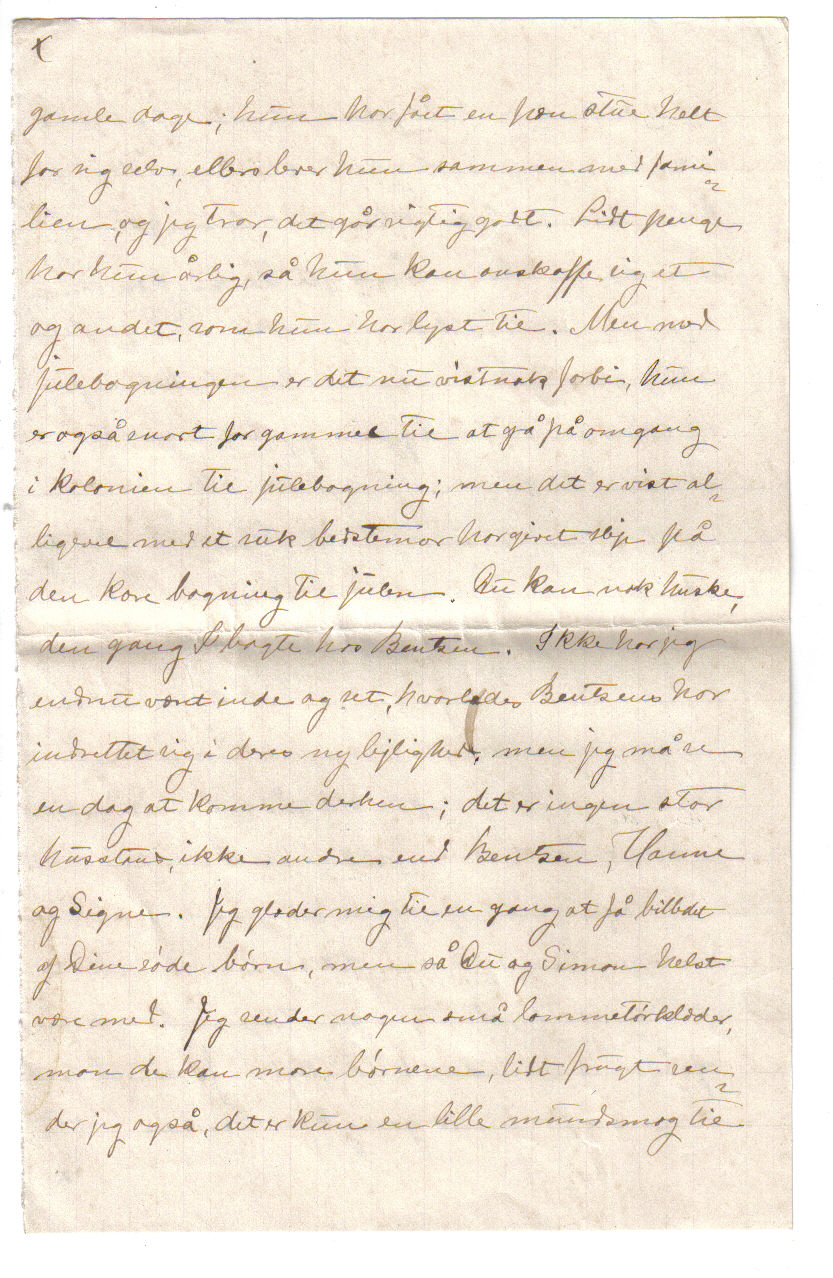 x
gamle dage; hun har fået en pæn stue helt
for sig selv, ellers lever hun sammen med fami-
lien, og jeg tror, det går rigtig godt. Lidt penge
har hun årlig, så hun kan anskaffe sig et
og andet, som hun har lyst til. Men med
julebagningen er det nu vistnok forbi, hun
er også snart for gammel til at gå på omgang
i kolonien til julebagning; men det er vist al-
ligevel med et suk bedstemor har givet slip på
den kære bagning til julen. Du kan nok huske,
den gang I bagte hos Bentsen. Ikke har jeg
endnu været inde og set, hvorledes Bentsens har
indrettet sig i deres ny lejlighed, men jeg må se
en dag at komme derhen; det er ingen stor
husstand, ikke andre end Bentsen, Hanne
og Signe. Jeg glæder mig til en gang at få billedet
af Dine søde børn, men så Du og Simon helst
være med. Jeg sender nogen små lommetørklæder,
mon de kan more børnene, lidt frugt sen-
der jeg også, det er kun en lille mundsmag til